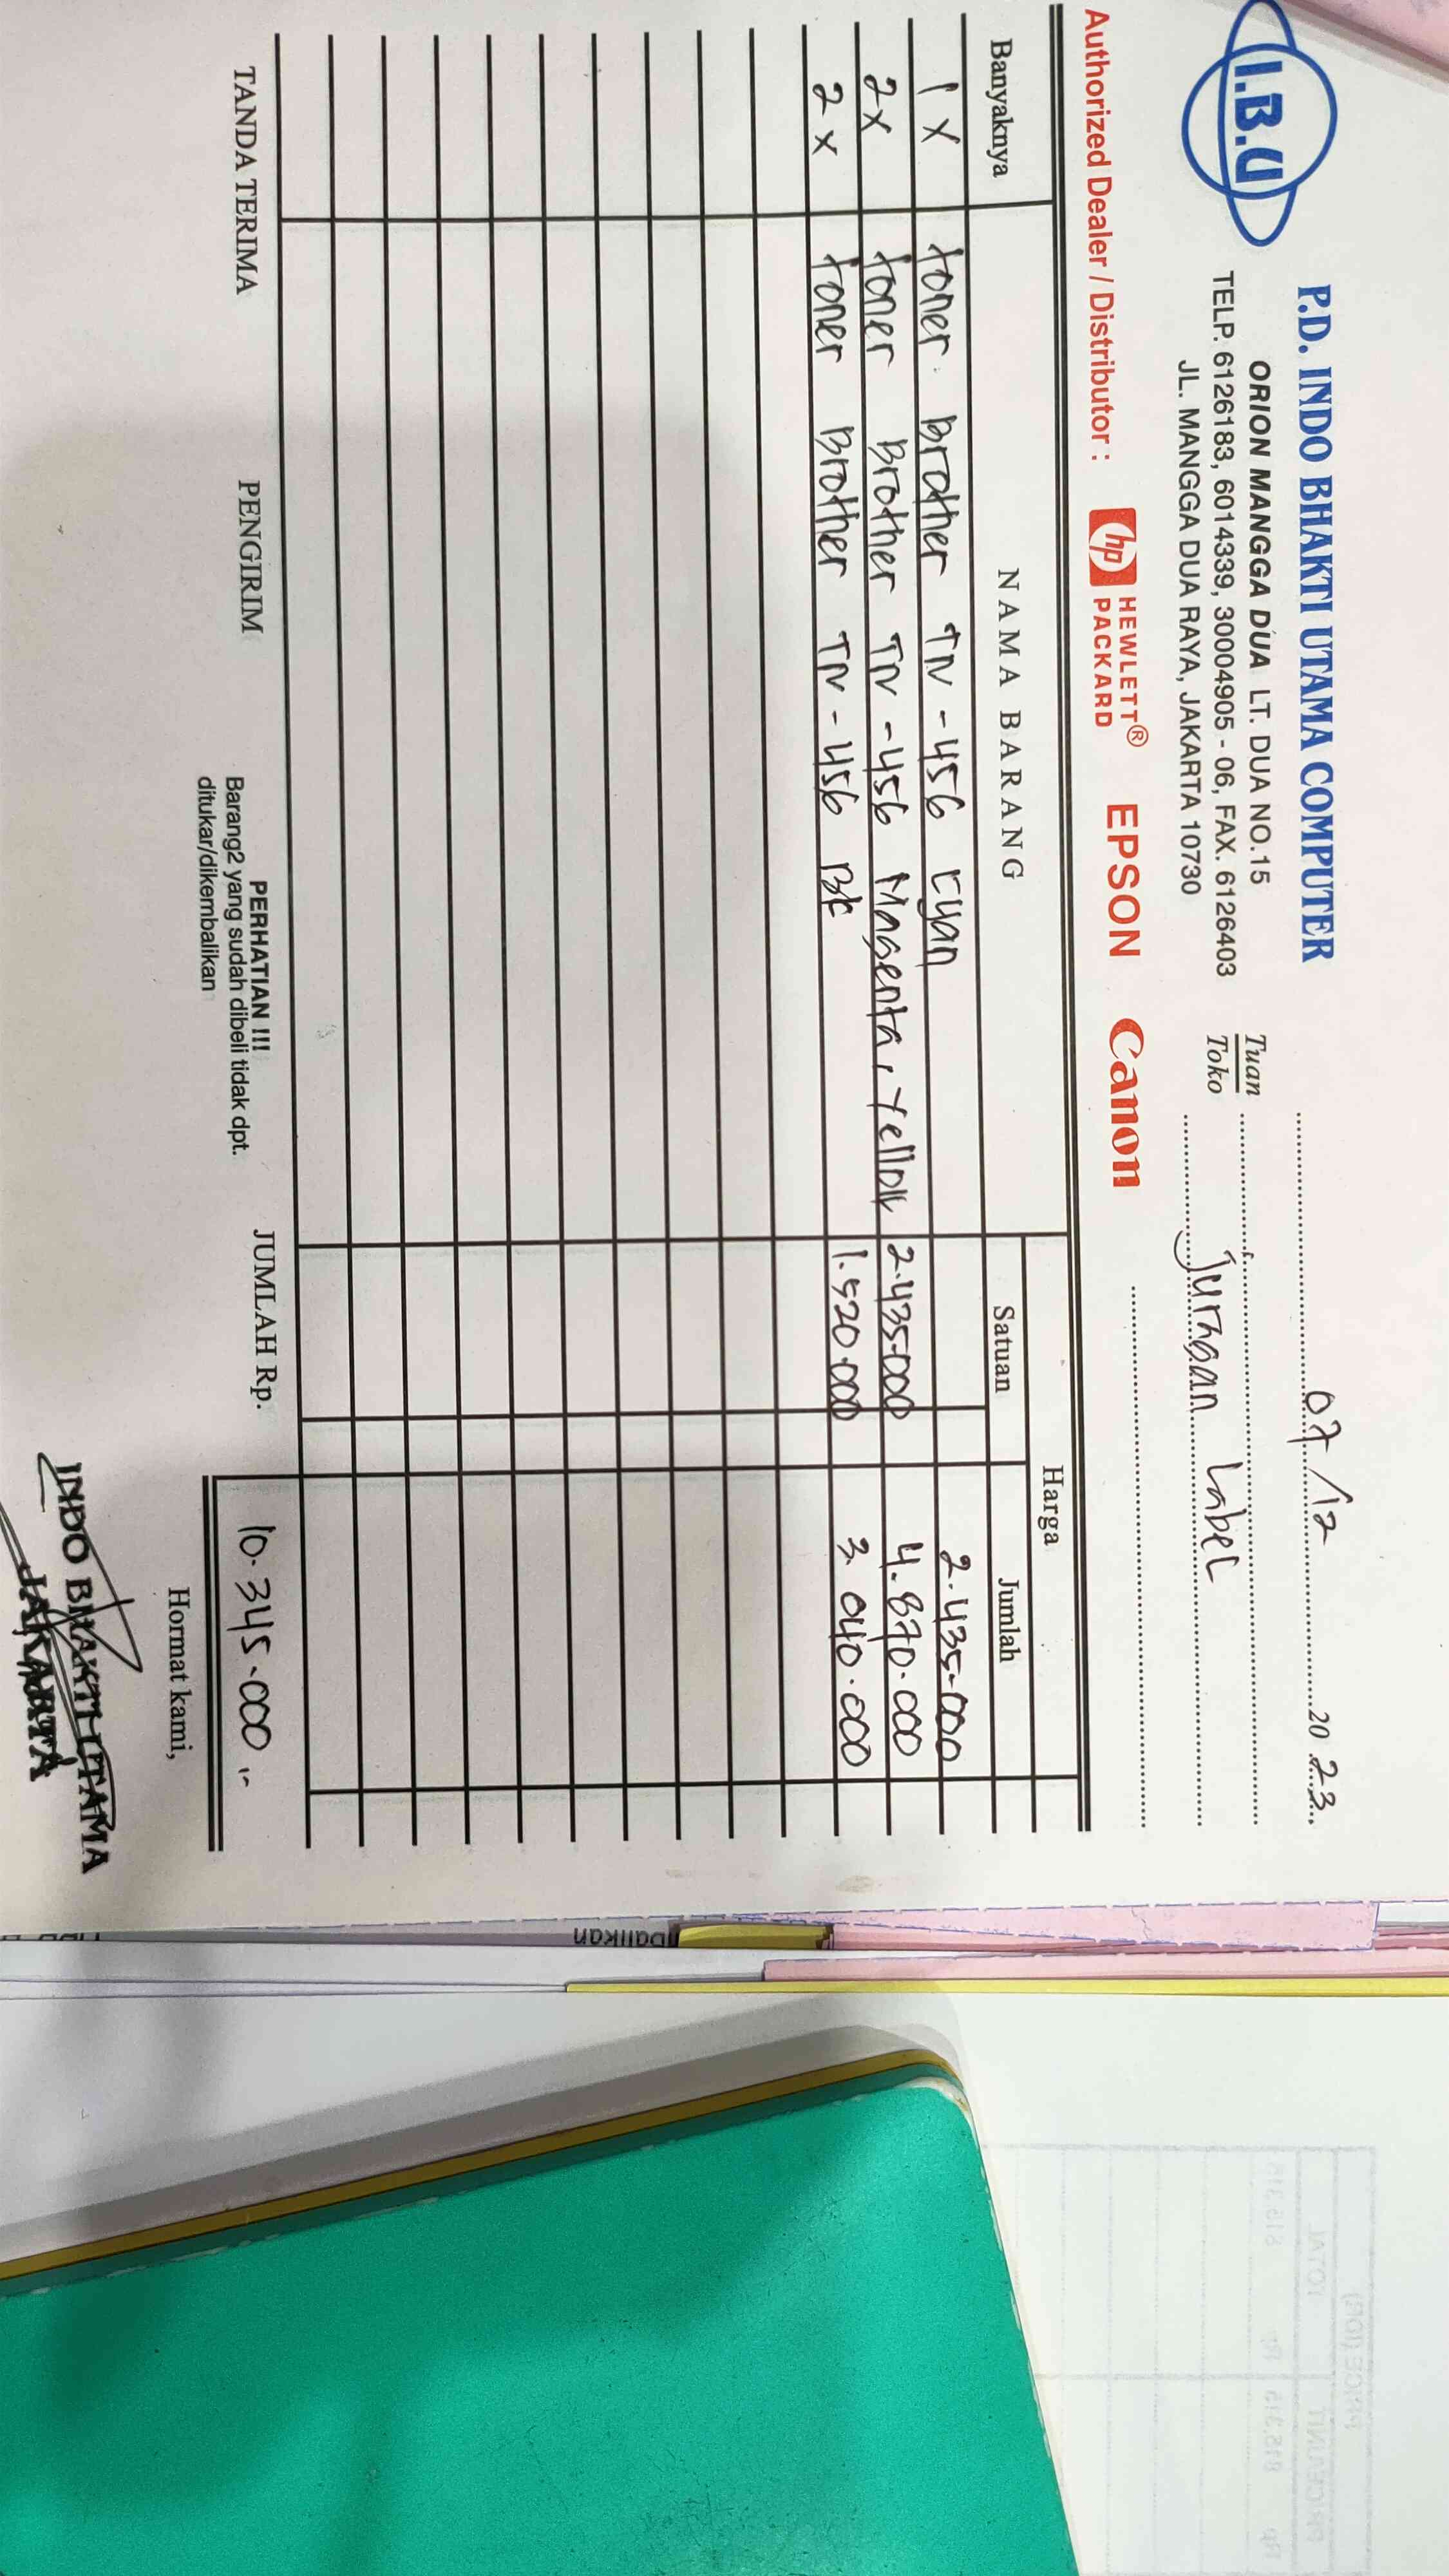 I.B.U
P.D. INDO BHAKTI UTAMA COMPUTER
ORION MANGGA DUA LT. DUA NO.15
TELP. 6126183, 6014339, 30004905 - 06, FAX. 6126403
JL. MANGGA DUA RAYA, JAKARTA 10730
07/12 2023
Tuan
Toko
Juragan Label
Authorized Dealer / Distributor : hp HEWLETT® PACKARD EPSON Canon
Banyaknya NAMA BARANG Harga
Satuan Jumlah
1 X toner Brother TN - 456 Cyan 2.435.000
2 X toner Brother TN - 456 Magenta, Yellow 2.435.000 4.870.000
2 X toner Brother TN - 456 BK 1.520.000 3.040.000
TANDA TERIMA PENGIRIM JUMLAH Rp. 10.345.000,-
PERHATIAN !!!
Barang2 yang sudah dibeli tidak dpt.
ditukar/dikembalikan
Hormat kami,
INDO BHAKTI UTAMA
JAKARTA
balikan
PRICE (IDR)
PRICE/UNIT TOTAL
Rp
Rp